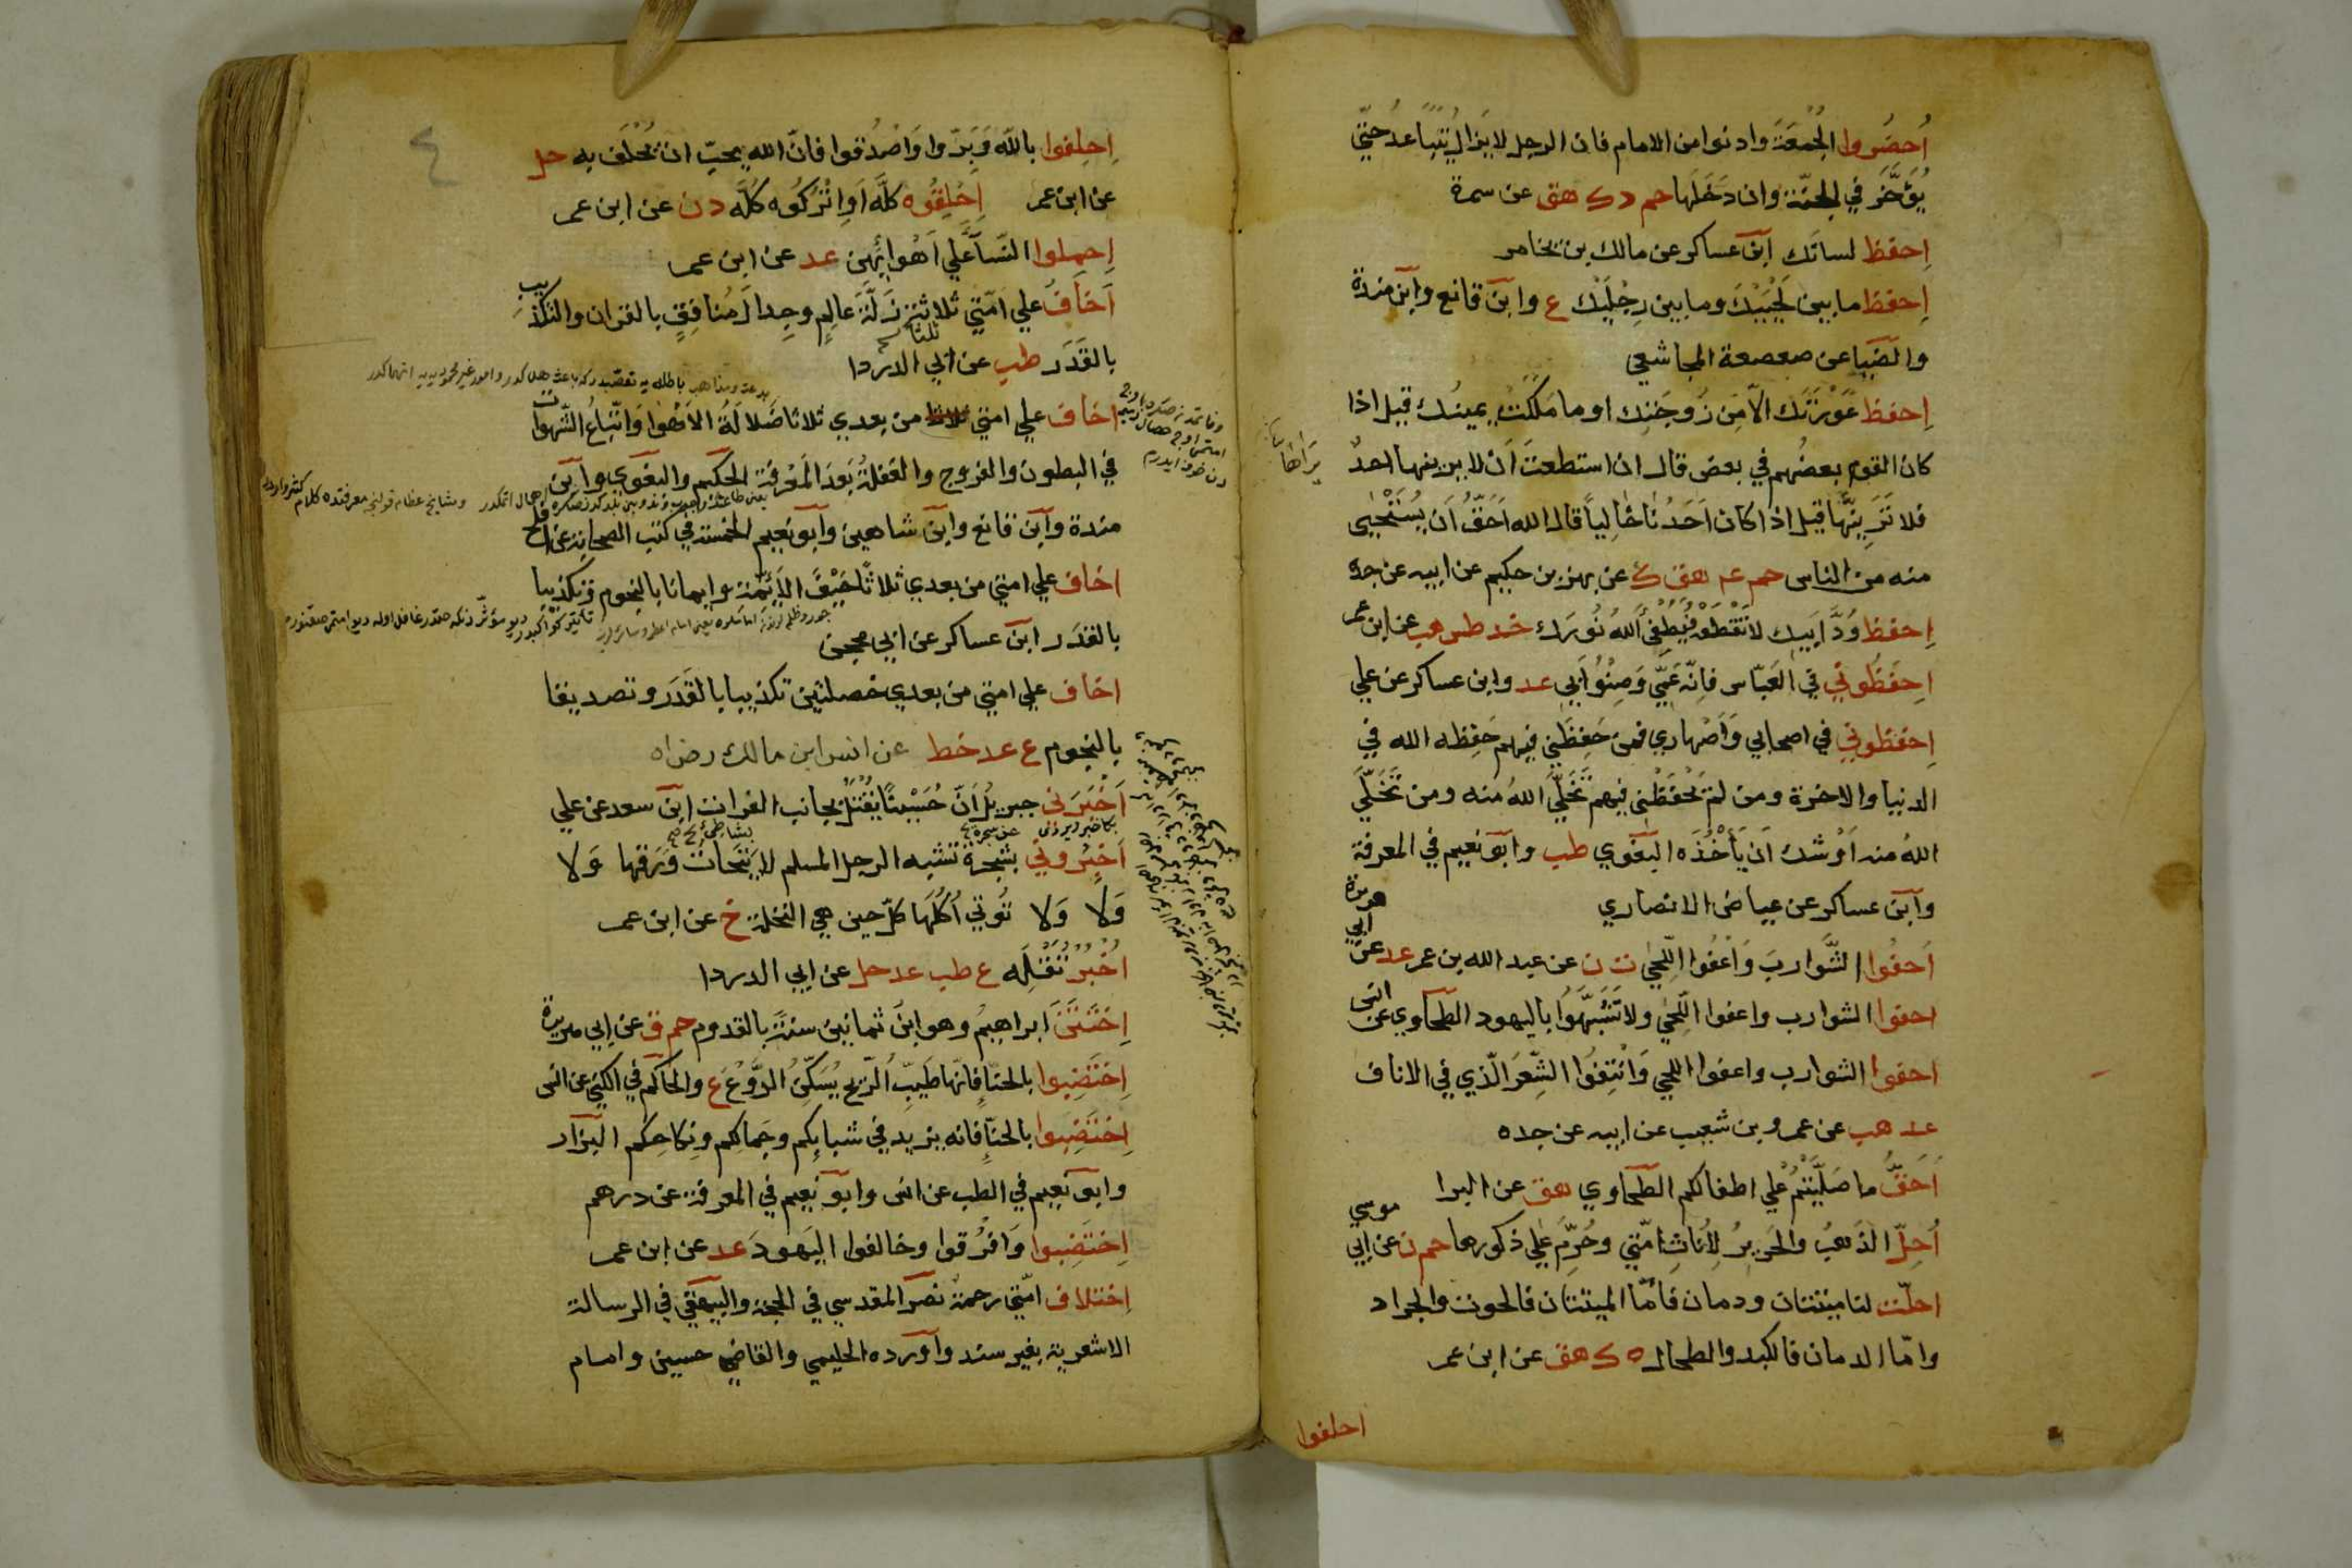 اُحضُروا الجُمُعَةَ وادنوا من الامام فان الرجل لا يَزالُ يَتَباعدُ حتّي
يُؤَخَّرَ في الجنّة وان دَخَلَها حم د ك هق عن سمرة
اِحفظ لسانَك اٰبن عساكر عن مالك بن يخامر
اِحفظ ما بين لَحْيَيْكَ وما بين رِجْلَيْكَ ع وابن قانع وابن مندة
والضّيا عن صعصعة المجاشعي
اِحفظ عَوْرَتَك الّا مِن زَوجَتِك او ما مَلَكَتْ يمينُك قيل اذا
كان القوم بعضُهم في بعض قال ان استطعتَ اَن لا يرينها احدٌ
فلا تَرَينّها قيل اذا كان اَحَدُنا خالياً قال الله اَحَقُّ اَن يُسْتَحْيٰى
منه من الناس حم عم هق ك عن بهز بن حكيم عن ابيه عن جده
اِحفظ وُدَّ اَبيك لا تَقْطَعْه فَيُطفِئَ اللهُ نُورَك خد طس هب عن ابن عمر
اِحفَظُوني في العَبّاس فاِنّه عَمّي وَصِنْوُ اَبي عد وابن عساكر عن علي
اِحفظوني في اصحابي وَاَصْهاري فمن حَفِظَني فيهم حَفِظه الله في
الدنيا والاخرة ومن لمْ يَحْفَظْني فيهم تَخَلَّي اللهُ منه ومن تَخَلَّي
اللهُ منه اَوْشك اَن يَأخُذَه البغوي طب وابو نعيم في المعرفة
وابن عساكر عن عياض الانصاري
اَحفُوا الشَّوارِبَ وَاَعْفُوا اللّحي ت ن عن عبد الله بن عمر عد عن ابي هريرة
احفوا الشوارب واعفوا اللّحي ولا تَشَبَّهُوا باليهود الطحاوي عن انس
احفوا الشوارب واعفوا اللحي وَانْتِفُوا الشَّعرَ الّذي في الاناف
عد هب عن عمرو بن شعيب عن ابيه عن جده
اَحَقُّ ما صَلَّيْتُمْ عَلي اطفالكم الطحاوي هق عن البرا
اُحِلّ الذَهبُ والحَرِيرُ لِاُناثِ امّتي وحُرِّمَ عَلي ذكورها حم ن عن ابي موسي
احلّت لنا ميتتان ودمان فامّا الميتتان فالحوت والجراد
وامّا الدمان فالكبد والطحال ه ك هق عن ابن عمر
احلفوا
٤
اِحلِفوا باللّه وَبَرّوا وَاصْدُقوا فانّ الله يحبّ ان يُحْلَفَ به حل
عن ابن عمر اِحْلِقُوه كلَّه اَوِ اتْرُكُوه كُلَّه د ن عن ابن عمر
اِحمِلوا النّسآ عَلي اَهْوائِهِن عد عن ابن عمر
اَخافُ علي امّتي ثلاثا زَلّةَ عالِمٍ وجِدالَ مُنافِقٍ بالقران والتكذيب
بالقَدَر طب عن ابي الدردا
اخاف علي امتي من بعدي ثلاثا ضَلالَةَ الاَهْوا وَاتّباعُ الشّهوات
في البطون والفروج والغفلةُ بَعدَ المَعْرفة الحكيم والبغوي وابن
مندة وابن قانع وابن شاهين وابو نعيم الخمسة في كتب الصحابة عن افلح
اخاف علي امتي من بعدي ثلاثًا حَيْفَ الاَئِمّة وايمانا بالنجوم وتكذيبا
بالقدَر ابن عساكر عن ابي محجن
اخاف علي امتي من بعدي خصلتين تكذيبا بالقَدَر وتصديقا
بالنجوم ع عد خط عن انس ابن مالك رض
اَخْبَرَني جبريلُ اَنّ حُسَيْنًا يُقْتَلُ بجانب الفرات ابن سعد عن علي
اَخْبِرُوني بشجرةٍ تشبه الرجل المسلم لا يَتَحاتُّ وَرَقُها وَلا
وَلا وَلا تُوتي اُكُلَها كلّ حين هي النخلة خ عن ابن عمر
اُخْبُرْ تَقْلِه ع طب عد حل عن ابي الدردا
اِخْتَتَنَ ابراهيمُ وهو ابنُ ثمانين سنةً بالقدوم حم ق عن ابي هريرة
اِختَضِبوا بالحنّا فانّها طَيّبُ الرّيح يُسَكّنُ الرَّوْعَ ع والحاكم في الكني عن انس
اِختَضِبوا بالحنّا فانه يزيد في شبابِكم وجَمالكم ونِكاحِكم البزار
وابو نعيم في الطب عن انس وابو نعيم في المعرفة عن درهم
اِختَضِبوا وَافْرُقوا وخالفوا اليَهودَ عد عن ابن عمر
اِختلاف امّتي رحمة نصر المقدسي في الحجة والبيهقي في الرسالة
الاشعرية بغير سند واورده الحليمي والقاضي حسين وامام